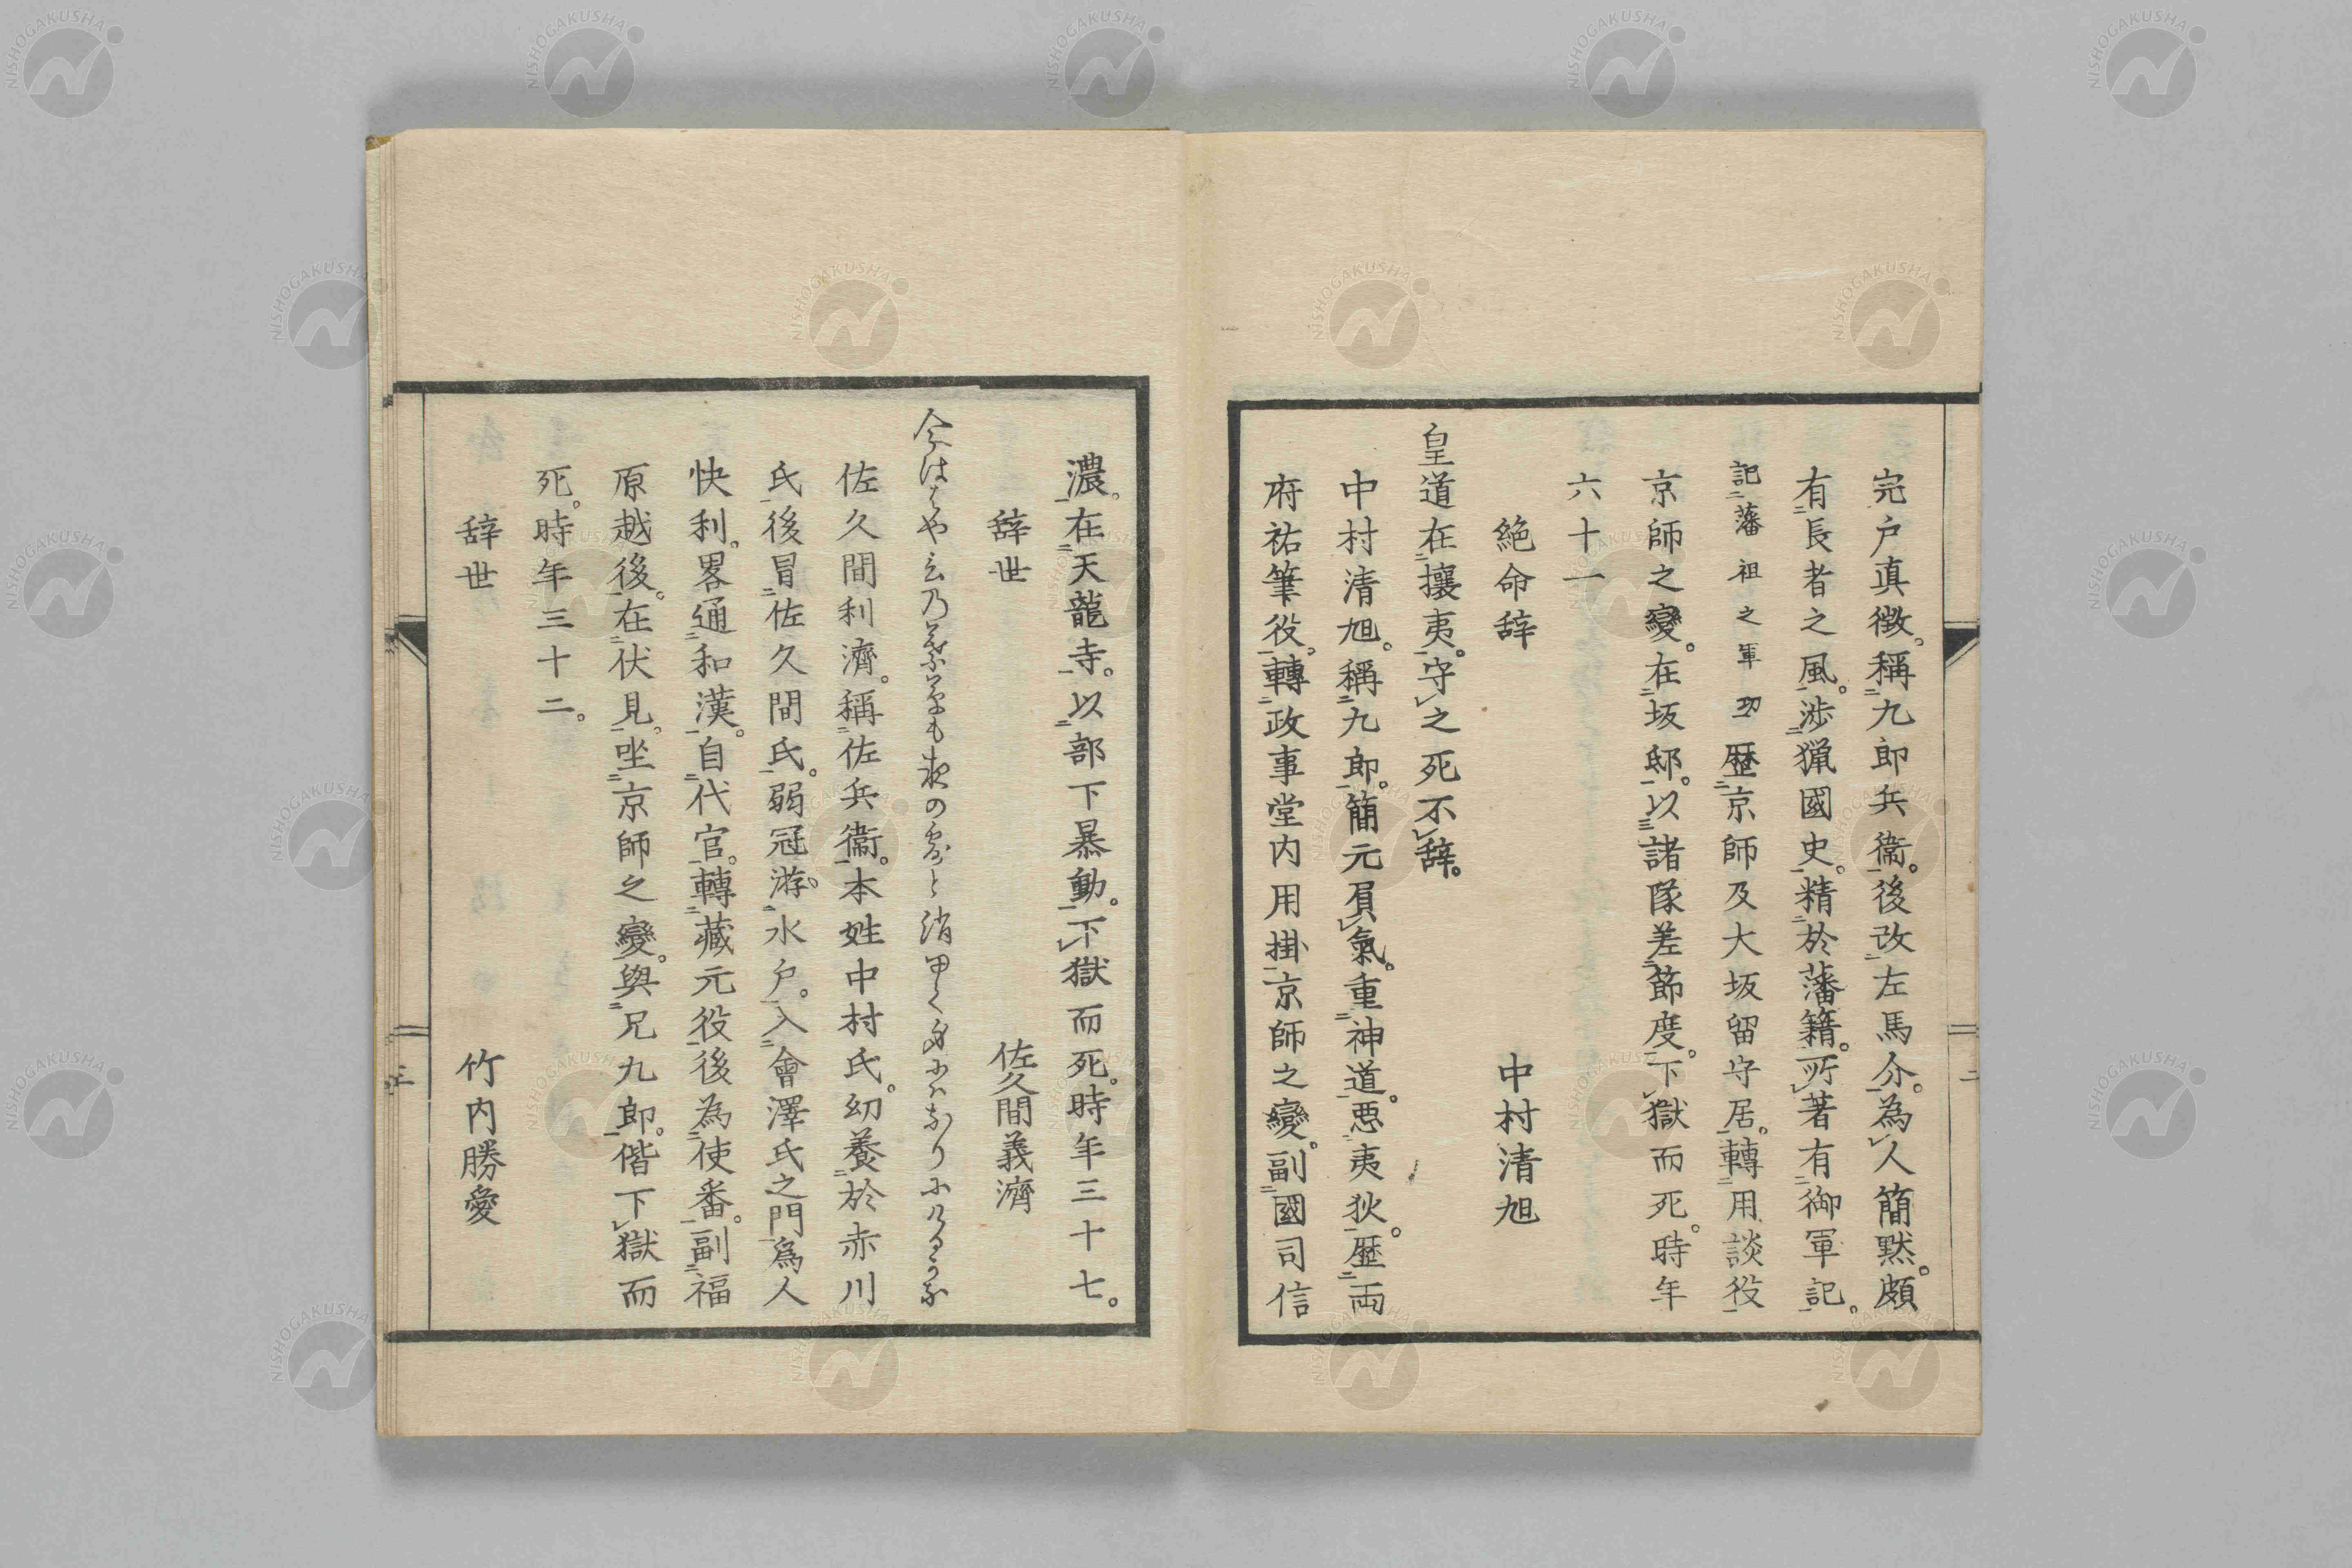 完戸真徴。稱九郎兵衞。後改左馬介。為人簡黙。頗
有長者之風。渉猟國史。精於藩籍。所著有御軍記。
記藩祖之軍功 歴京師及大坂留守居。轉用談役
京師之變。在坂邸。以諸隊差節度。下獄而死。時年
六十一
絶命辞 中村清旭
皇道在攘夷。守之死不辞。
中村清旭。稱九郎。簡元負氣。重神道。悪夷狄。歴両
府祐筆役。轉政事堂内用掛。京師之變。副國司信
二
濃。在天龍寺。以部下暴動。下獄而死。時年三十七。
辞世 佐久間義濟
佐久間利濟。稱佐兵衞。本姓中村氏。幼養於赤川
氏後冒佐久間氏。弱冠游水戶。入會澤氏之門為人
快利。畧通和漢。自代官。轉藏元役後為使番。副福
原越後。在伏見。坐京師之變。與兄九郎。偕下獄而
死。時年三十二。
辞世 竹内勝愛
三
NISHOGAKUSHA